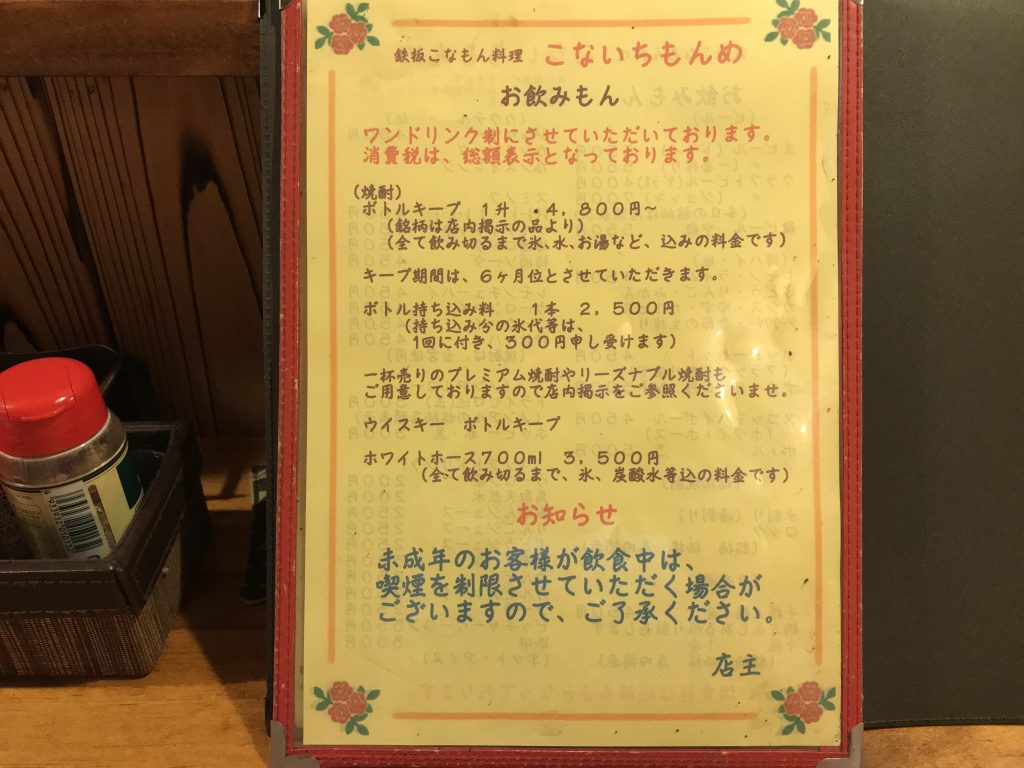 鉄板こなもん料理 こないちもんめ
お飲みもん
ワンドリンク制にさせていただいております。
消費税は、総額表示となっております。
(焼酎)
ボトルキープ 1升 ・4,800円～
(銘柄は店内掲示の品より)
(全て飲み切るまで氷、水、お湯など、込みの料金です)
キープ期間は、6ヶ月位とさせていただきます。
ボトル持ち込み料 1本 2,500円
(持ち込み分の氷代等は、
1回に付き、300円申し受けます)
一杯売りのプレミアム焼酎やリーズナブル焼酎も
ご用意しておりますので店内掲示をご参照くださいませ。
ウイスキー ボトルキープ
ホワイトホース700ml 3,500円
(全て飲み切るまで、氷、炭酸水等込の料金です)
お知らせ
未成年のお客様が飲食中は、
喫煙を制限させていただく場合が
ございますので、ご了承ください。
店主